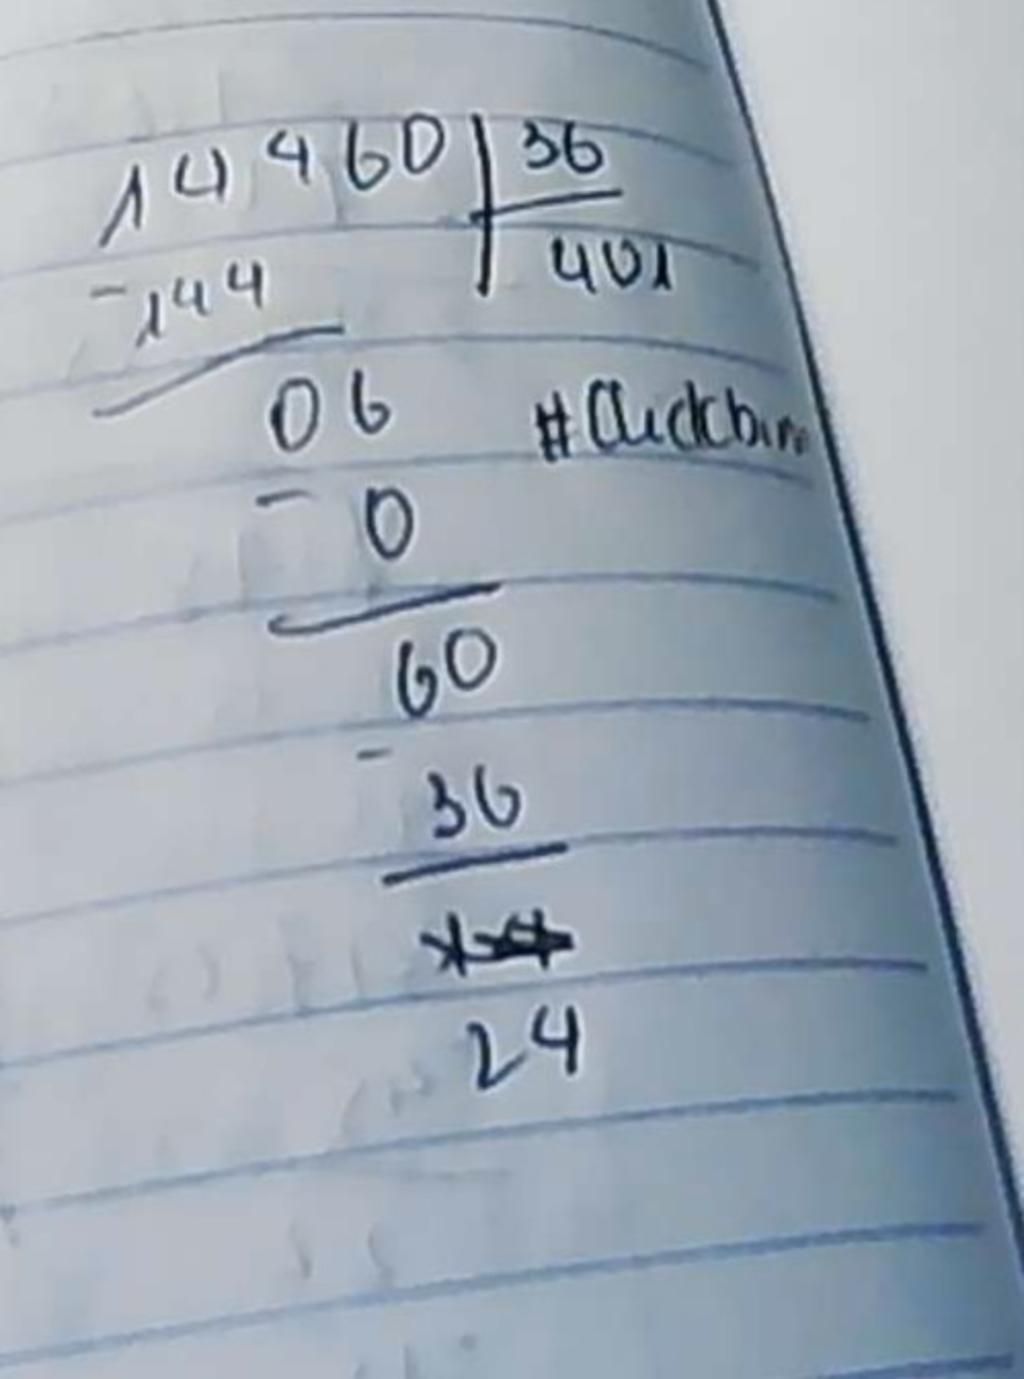 14460 | 36
-144 401
06
- 0
60
- 36
24